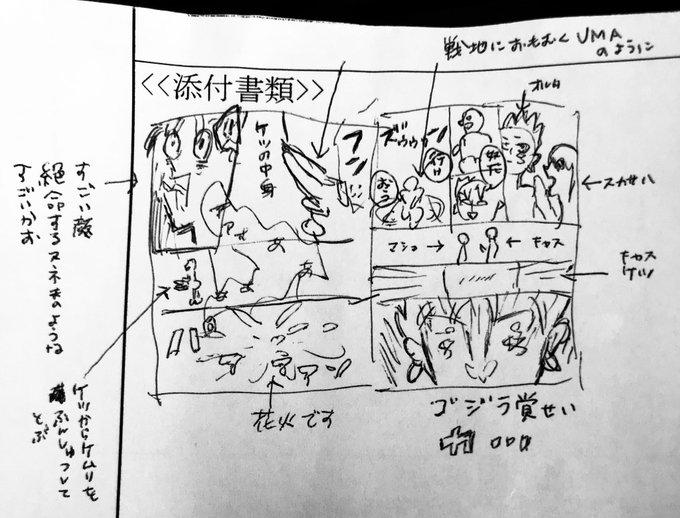 戦地におもむくUMA
のように
<<添付書類>>
オルタ
ズウゥゥン
行け
ケツの中身
フン
スカサハ
マシュ→
←キャス
キャス
ケツ
すごい顔
絶命するスネ夫のような
すごいかお
あ
あ
ケツからケムリを
ふんしゅつして
とぶ
花火です
ゴジラ覚せい